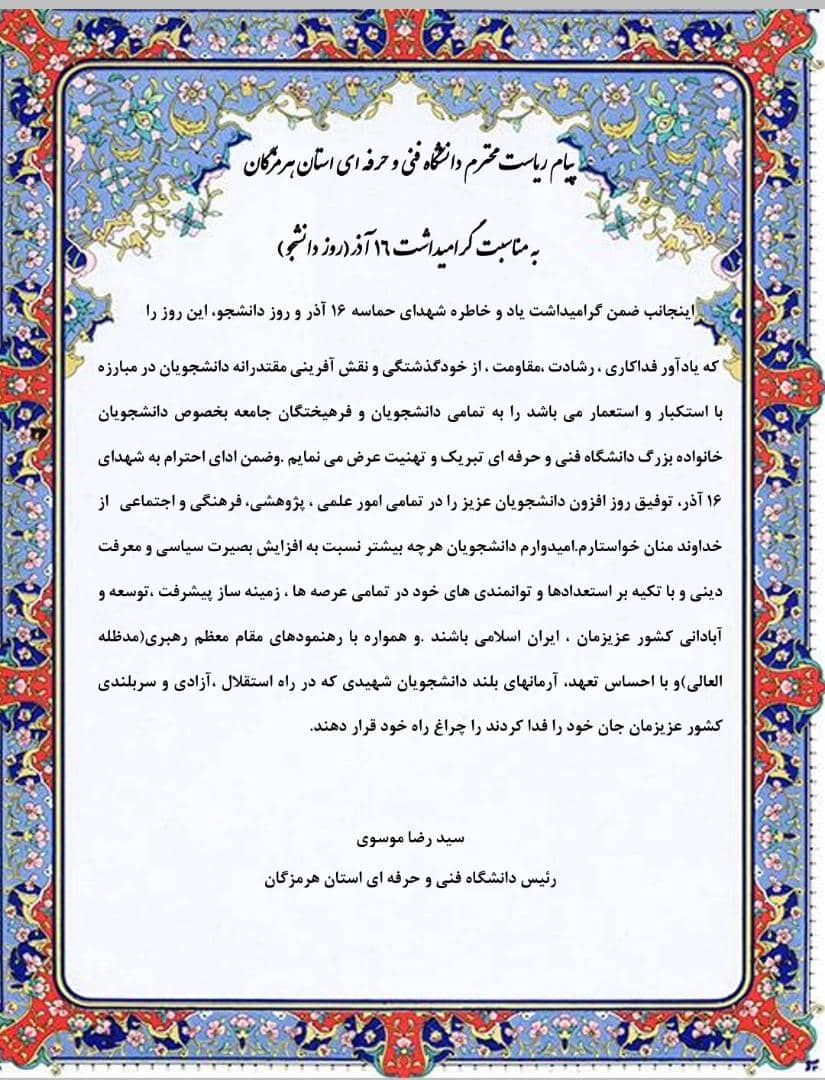 پیام ریاست محترم دانشگاه فنی و حرفه ای استان هرمزگان
به مناسبت گرامیداشت ۱۶ آذر (روز دانشجو)
اینجانب ضمن گرامیداشت یاد و خاطره شهدای حماسه ۱۶ آذر و روز دانشجو، این روز را
که یادآور فداکاری ، رشادت ،مقاومت ، از خودگذشتگی و نقش آفرینی مقتدرانه دانشجویان در مبارزه
با استکبار و استعمار می باشد را به تمامی دانشجویان و فرهیختگان جامعه بخصوص دانشجویان
خانواده بزرگ دانشگاه فنی و حرفه ای تبریک و تهنیت عرض می نمایم .وضمن ادای احترام به شهدای
۱۶ آذر، توفیق روز افزون دانشجویان عزیز را در تمامی امور علمی ، پژوهشی، فرهنگی و اجتماعی از
خداوند منان خواستارم.امیدوارم دانشجویان هرچه بیشتر نسبت به افزایش بصیرت سیاسی و معرفت
دینی و با تکیه بر استعدادها و توانمندی های خود در تمامی عرصه ها ، زمینه ساز پیشرفت ،توسعه و
آبادانی کشور عزیزمان ، ایران اسلامی باشند .و همواره با رهنمودهای مقام معظم رهبری(مدظله
العالی)و با احساس تعهد، آرمانهای بلند دانشجویان شهیدی که در راه استقلال ،آزادی و سربلندی
کشور عزیزمان جان خود را فدا کردند را چراغ راه خود قرار دهند.
سید رضا موسوی
رئیس دانشگاه فنی و حرفه ای استان هرمزگان